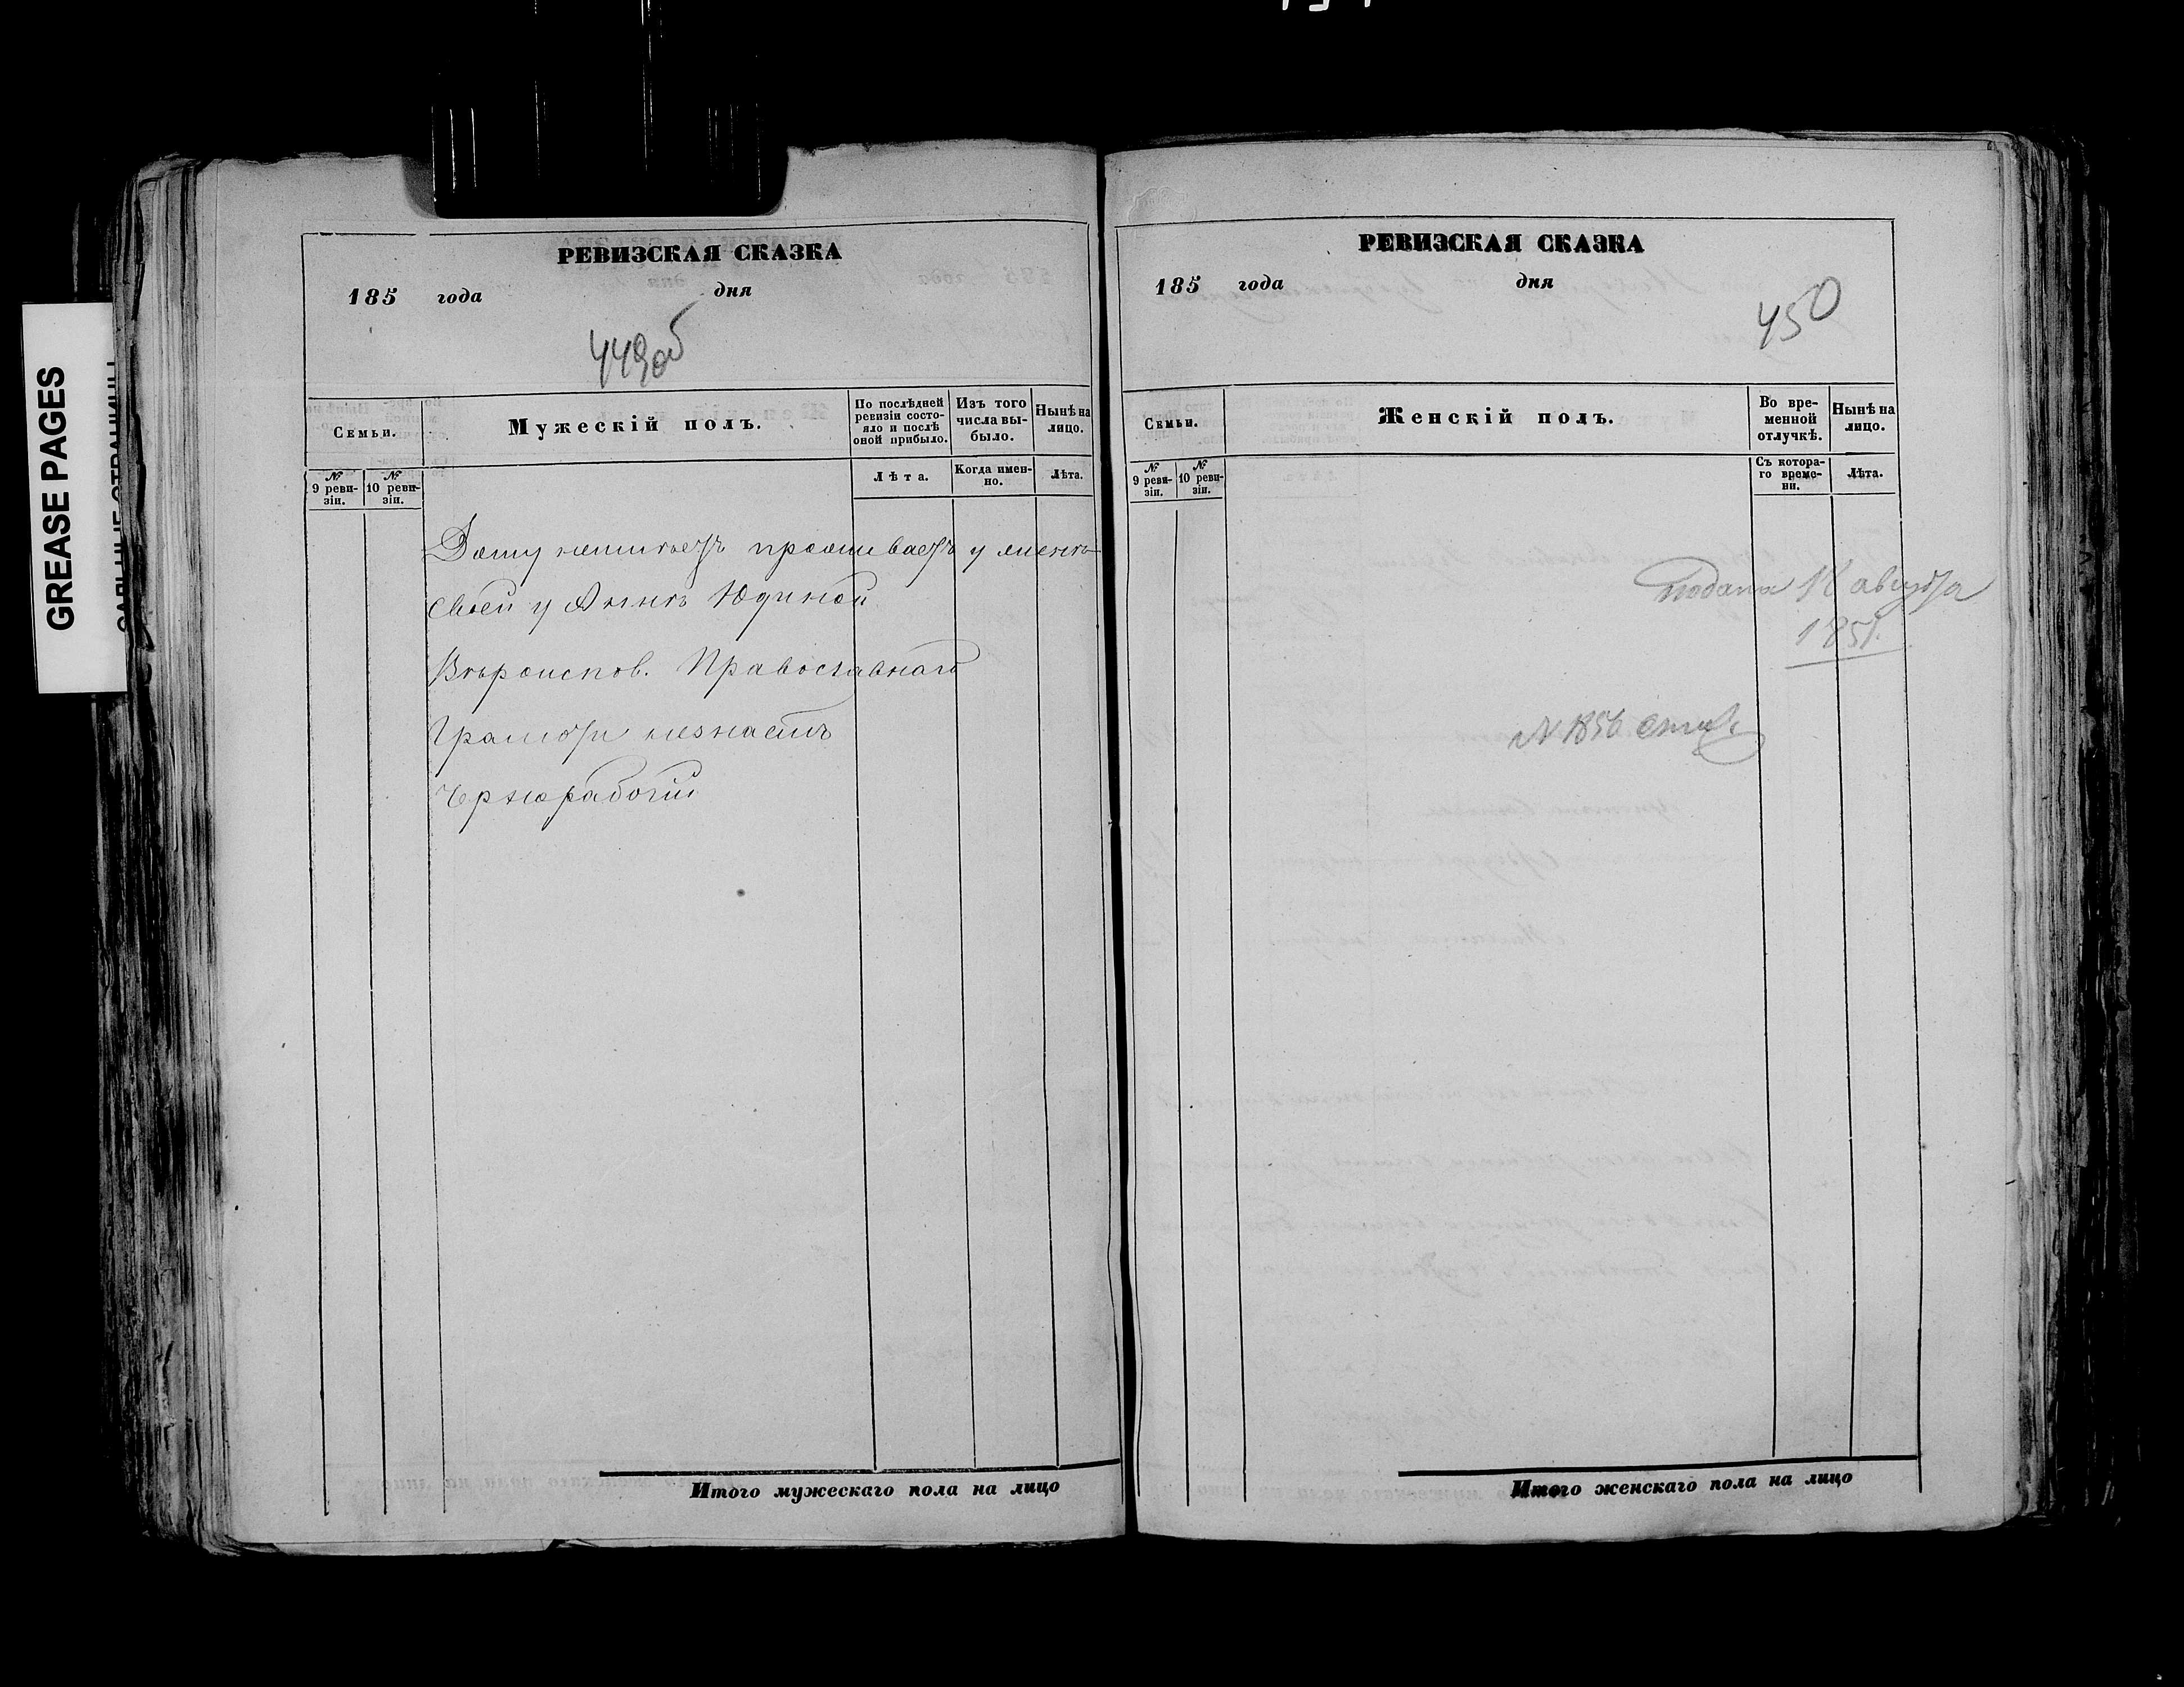 GREASE PAGES
РЕВИЗСКАЯ СКАЗКА
185 года дня
449об
Семьи.
Мужескій полъ.
По послѣдней ревизіи состояло и послѣ оной прибыло.
Изъ того числа выбыло.
Нынѣ на лицо.
№ 9 ревизіи.
№ 10 ревизіи.
Лѣта.
Когда именно.
Лѣта.
Дому неимѣетъ проживаетъ у
своей у Аннѣ Юдиной
Вѣроиспов. Православнаго
Грамоти незнаетъ
Чернорабочій
Итого мужескаго пола на лицо
РЕВИЗСКАЯ СКАЗКА
185 года дня
450
Семьи.
Женскій полъ.
Во временной отлучкѣ.
Нынѣ на лицо.
№ 9 ревизіи.
№ 10 ревизіи.
Съ котораго времени.
Лѣта.
подана августа
185
№ 1856
Итого женскаго пола на лицо